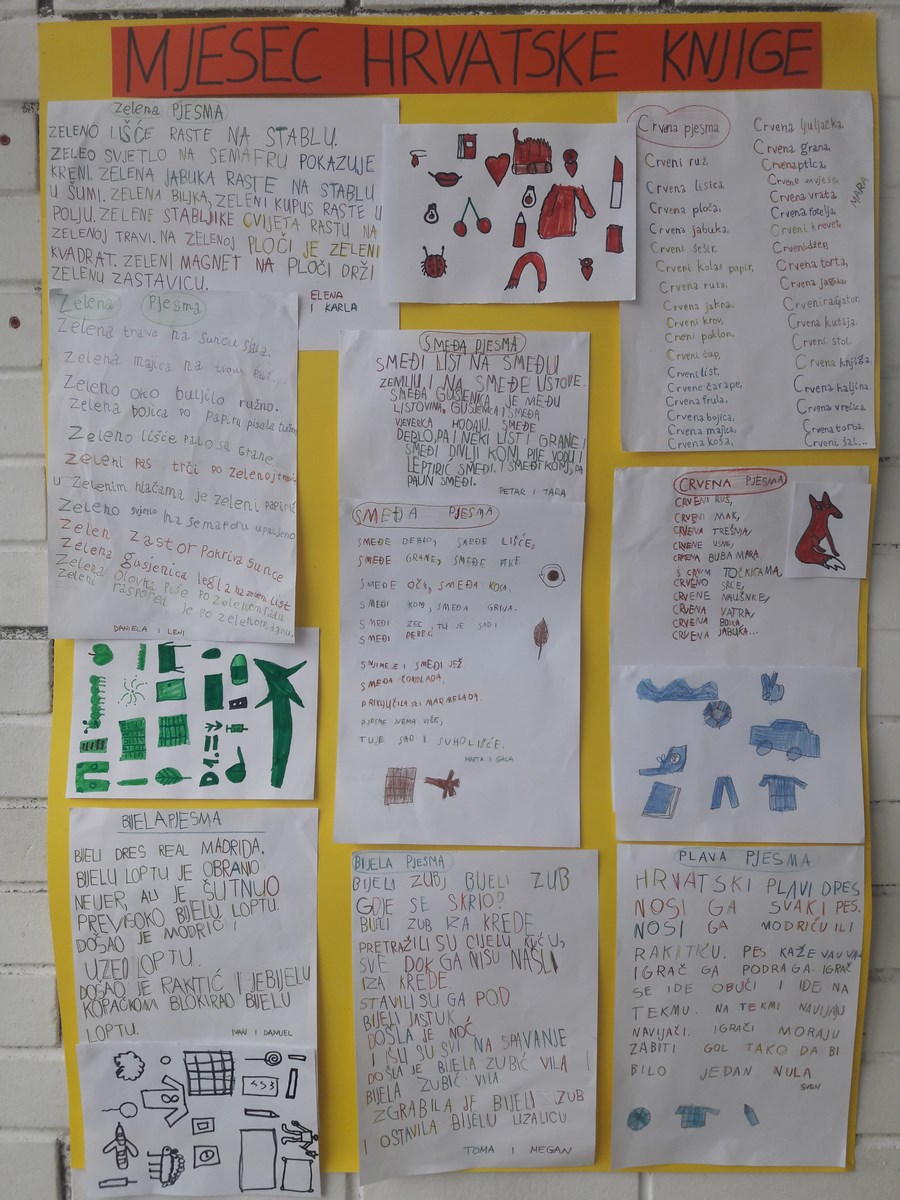 MJESEC HRVATSKE KNJIGE
Zelena PJESMA
ZELENO LIŠĆE RASTE NA STABLU.
ZELEO SVJETLO NA SEMAFRU POKAZUJE
KRENI. ZELENA JABUKA RASTE NA STABLU
U ŠUMI. ZELENA BILJKA, ZELENI KUPUS RASTE U
POLJU. ZELENE STABLJIKE CVIJETA RASTU NA
ZELENOJ TRAVI. NA ZELENOJ PLOČI JE ZELENI
KVADRAT. ZELENI MAGNET NA PLOČI DRŽI
ZELENU ZASTAVICU.
ELENA
I KARLA
Zelena Pjesma
Zelena trava na suncu
Zelena majica na
Zeleno oko buljilo ružno.
Zelena bojica po papiru pisala
Zeleno lišće palo sa grane
Zeleni pas trči po zelenoj
u Zelenim hlačama je zeleni
Zeleno svjetlo na semaforu
Zelen zastor Pokriva sunce
Zelena gusjenica legla na zeleni list
Zelena Olovka piše po zelenom
Zeleni raspored je po zelenom danu.
DANIELA I LENI
BIJELA PJESMA
BJELI DRES REAL MADRIDA.
BIJELU LOPTU JE OBRANIO
NEUER, ALI JE ŠUTNUO
PREVISOKO BIJELU LOPTU.
DOŠAO JE MODRIĆ I
UZEO LOPTU.
DOŠAO JE RAKTIĆ I JE BIJELU
KOPAČKOM BLOKIRAO BIJELU
LOPTU.
IVAN I DANIJEL
SMEĐA PJESMA
SMEĐI LIST NA SMEĐU
ZEMLJU I NA SMEĐE LISTOVE.
SMEĐA GUSJENKA JE MEĐU
LISTOVINA, GUSJENKA I SMEĐA
VJEVERICA HODAJU. SMEĐE
DEBLO, PA I NEKI LIST I GRANE I
SMEĐI DIVLJI KONJ PIJE VODU I
LEPTIRIĆ SMEĐI. I SMEĐI KONJ, PA
PAUN SMEĐI.
PETAR I TARA
SMEĐA PJESMA
SMEĐE DEBLO, SMEĐE LIŠĆE,
SMEĐE GRANE, SMEĐE
SMEĐE OČI, SMEĐA KOSA,
SMEĐI KONJ, SMEĐA GRIVA.
SMEĐI ZEC, TU JE SAD I
SMEĐI
SNJIME JE I SMEĐI JEŽ.
SMEĐA ČOKOLADA,
PRIKLJUČILA MARMELADA.
PJESME NEMA VIŠE,
TU JE SAD I SUHO LIŠĆE.
MARTA I GALA
BIJELA PJESMA
BIJELI ZUB, BIJELI ZUB
GDJE SE SKRIO?
BIJELI ZUB IZA KREDE
PRETRAŽILI SU CIJELU KUĆU,
SVE DOK GA NISU NAŠLI
IZA KREDE.
STAVILI SU GA POD
BIJELI JASTUK.
DOŠLA JE NOĆ
I IŠLI SU SVI NA SPAVANJE
DOŠLA JE BIJELA ZUBIĆ VILA I
BIJELA ZUBIĆ VILA
ZGRABILA JE BIJELI ZUB
I OSTAVILA BIJELU LIZALICU
TOMA I MEGAN
Crvena pjesma
Crveni ruž,
Crvena lisica,
Crvena ploča,
Crvena jabuka,
Crveni šešir,
Crveni kolaž papir,
Crvena ruža,
Crvena jakna,
Crveni krov,
Crveni poklon,
Crveni čep,
Crveni list,
Crvene čarape,
Crvena frula,
Crvena bojica,
Crvena majica,
Crvena koša,
Crvena ljuljačka.
Crvena grana,
Crvena ptica,
Crvene zavjese,
Crvena vrata,
Crvena fotelja,
Crveni krevet,
Crveni džep,
Crvena torta,
Crvena jagoda
Crveni radijator,
Crvena kutija,
Crveni stol,
Crvena knjiga,
Crvena haljina,
Crvena vrećica,
Crvena torba,
Crveni šal...
MARA
CRVENA PJESMA
CRVENI RUŽ,
CRVENI MAK,
CRVENA TREŠNJA,
CRVENE USNE,
CRVENA BUBA MARA
S CRNIM TOČKICAMA,
CRVENO SRCE,
CRVENE NAUŠNICE,
CRVENA VATRA,
CRVENA BOJICA,
CRVENA JABUKA...
PLAVA PJESMA
HRVATSKI PLAVI DRES
NOSI GA SVAKI PES.
NOSI GA MODRIĆU ILI
RAKITIĆU. PES KAŽE VAU VAU
IGRAČ GA PODRAGA. IGRAČ
SE IDE OBUĆI I IDE NA
TEKMU. NA TEKMI NAVIJAJU
NAVIJAČI. IGRAČI MORAJU
ZABITI GOL TAKO DA BI
BILO JEDAN NULA
SVEN